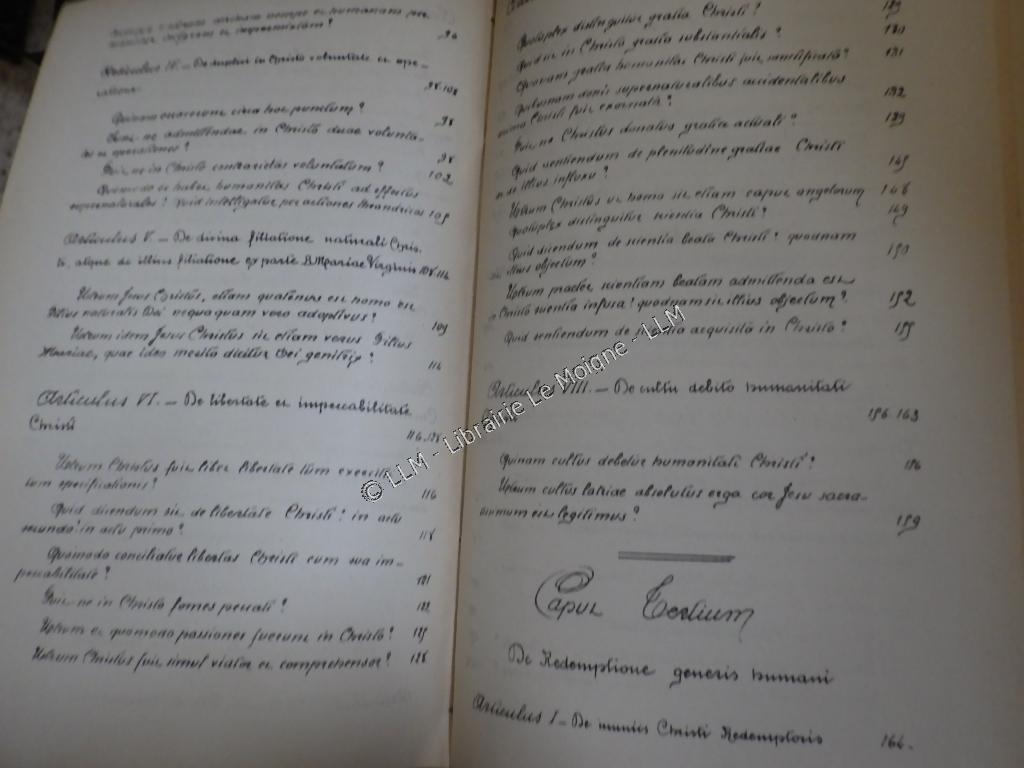 et humanam per
90
Articulus IV. — De duplici in Christo voluntate et ope-
ratione
98-108
Quinam circa hoc punctum?
98
admittendae in Christo duae volunta-
tes et operationes?
98
Fuit-ne in Christo contrarietas voluntatum?
102
Quomodo se habet humanitas Christi ad effectus
supernaturales? Quid intelligatur per actiones theandricas
105
Articulus V. — De divina filiatione naturali Chris-
ti, atque de illius filiatione ex parte B. Mariae Virginis
Utrum Jesus Christus, etiam quatenus est homo est
Filius naturalis Dei nequaquam vero adoptivus?
109
Utrum idem Jesus Christus sit etiam verus Filius
Mariae, quae ideo merito dicitur Dei genitrix?
114
Articulus VI. — De libertate et impeccabilitate
Christi
Utrum Christus fuit liber libertate tum exercitii
tum specificationis?
116
Quid dicendum sit de libertate Christi: in actu
secundo? in actu primo?
118
Quomodo conciliatur libertas Christi cum sua im-
peccabilitate?
121
Fuit-ne in Christo fomes peccati?
Utrum et quomodo passiones fuerunt in Christo?
125
Utrum Christus fuit simul viator et comprehensor?
128
Quotuplex distinguitur gratia Christi?
129
Quid sit in Christo gratia substantialis?
130
Quaenam gratia humanitas Christi fuit sanctificata?
131
Quibusnam donis supernaturalibus accidentalibus
anima Christi fuit exornata?
132
Fuit-ne Christus donatus gratia actuali?
139
Quid sentiendum de plenitudine gratiae Christi
et de illius influxu?
145
Utrum Christus ut homo sit etiam caput angelorum
146
Quotuplex distinguitur scientia Christi?
149
Quid dicendum de scientia beata Christi? quodnam
illius objectum?
150
Utrum praeter scientiam beatam admittenda est
in Christo scientia infusa? quodnam sit illius objectum?
152
Quid sentiendum de scientia acquisita in Christo?
155
Articulus VIII. — De cultu debito humanitati
156-163
Quinam cultus debetur humanitati Christi?
156
Utrum cultus latriae absolutus erga cor Jesu sacra-
tissimum est legitimus?
159
Caput Tertium
De Redemptione generis humani
Articulus I — De muniis Christi Redemptoris
164-
© LLM - Librairie Le Moigne - LLM